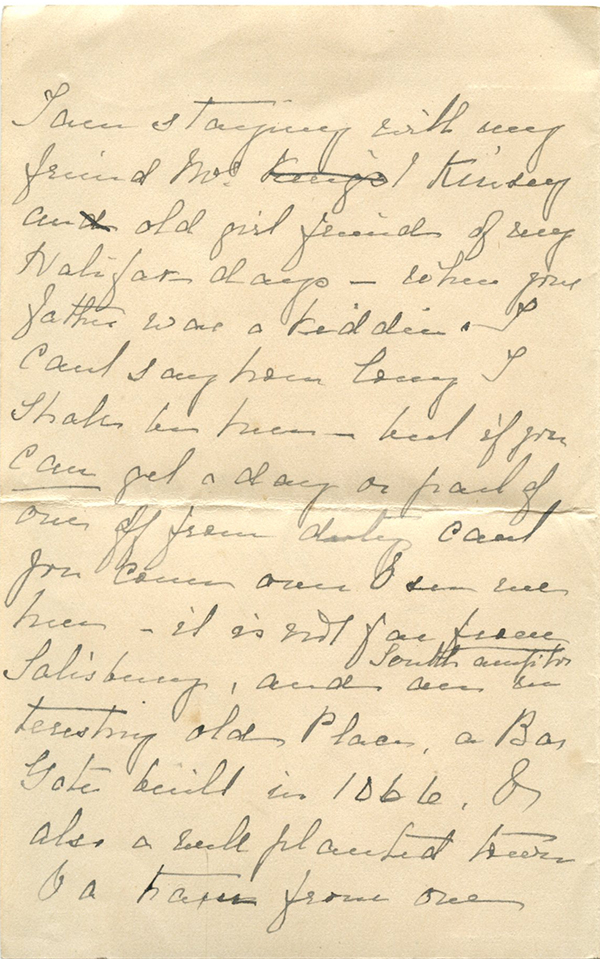 I am staying with my
friend Mrs Kinsey
and old girl friend of my
Halifax days – when your
father was a kiddie. I
cant say how long I
shall be here – but if you
can get a day or part of
one off from duty cant
you come over & see me
here – it is not far from
Southampton
Salisbury, and an in
teresting old Place, a Bar
Gate built in 1066, &
also a well planted town
& a tram from one